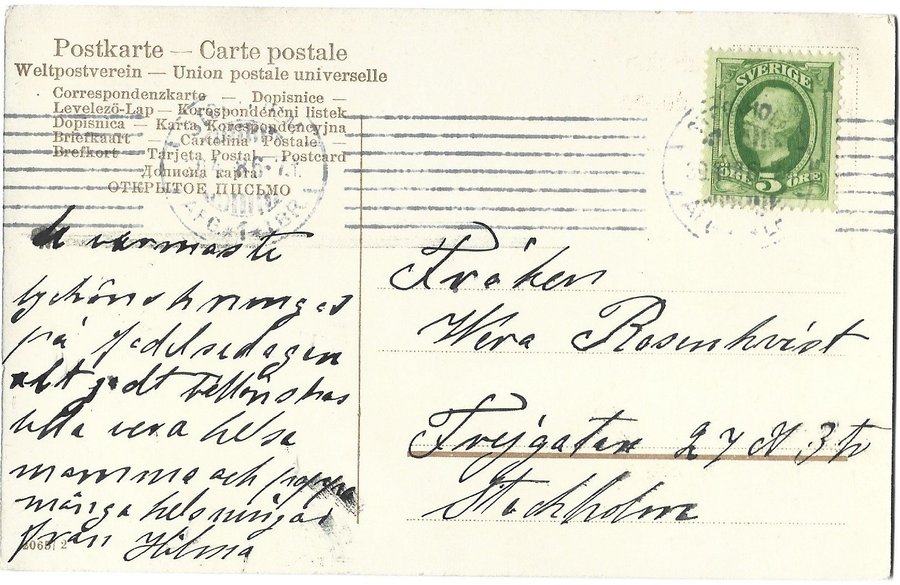 Postkarte — Carte postale
Weltpostverein — Union postale universelle
Correspondenzkarte — Dopisnice —
Levelezö-Lap — Korespondenční listek
Dopisnica — Karta Korespondencyjna
Briefkaart — Cartolina Postale —
Brefkort — Tarjeta Postal — Postcard
Дописна карта
ОТКРЫТОЕ ПИСЬМО
SVERIGE
5
ÖRE ÖRE
varmaste
lyckönskningar
på födelsedagen
allt godt tillönskas
lilla vera helsa
mamma och pappa
många helsningar
från Hilma
Fröken
Wera Rosenkvist
Frejgatan 27 3 tr
Stockholm
2065/2